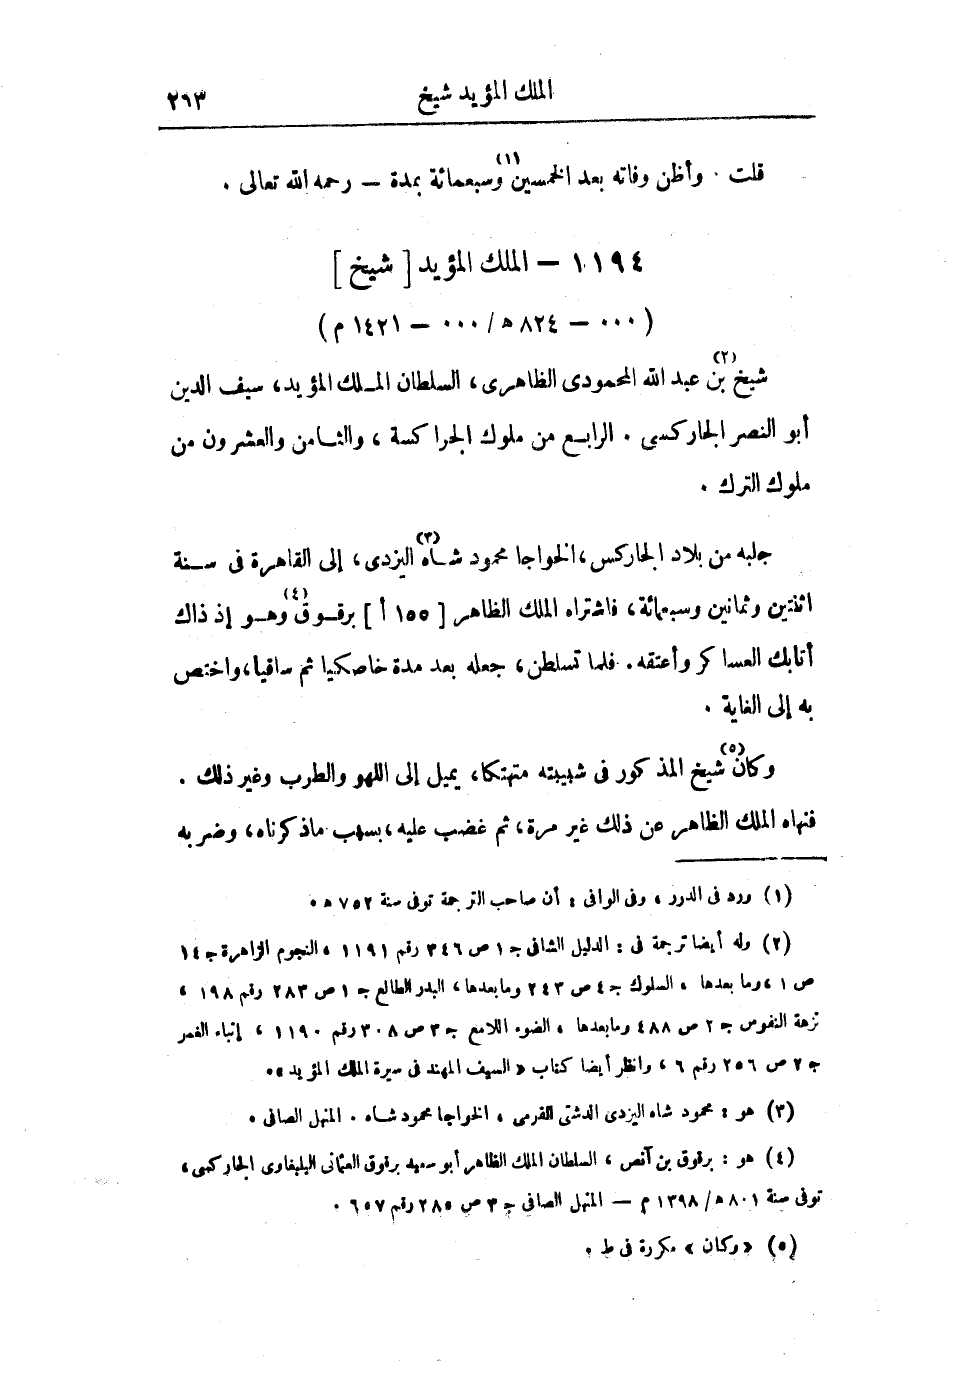 الملك المؤيد شيخ ٢٦٣
قلت . وأظن وفاته بعد الخمسين(١) وسبعمائة بمدة — رحمه الله تعالى .
١١٩٤ — الملك المؤيد [ شيخ ]
( ٠٠٠ — ٨٢٤ هـ / ٠٠٠ — ١٤٢١ م )
شيخ(٢) بن عبد الله المحمودى الظاهرى ، السلطان الملك المؤيد ، سيف الدين
أبو النصر الجاركسى . الرابع من ملوك الجراكسة ، والثامن والعشرون من
ملوك الترك .
جلبه من بلاد الجاركس ، الخواجا محمود شاه(٣) اليزدى ، إلى القاهرة فى سنة
اثنتين وثمانين وسبعمائة ، فاشتراه الملك الظاهر [ ١٥٥ أ ] برقوق(٤) وهو إذ ذاك
أتابك العساكر وأعتقه . فلما تسلطن ، جعله بعد مدة خاصكيا ثم ساقيا ، واختص
به إلى الغاية .
وكان(٥) شيخ المذكور فى شبيبته متهتكا ، يميل إلى اللهو والطرب وغير ذلك .
فنهاه الملك الظاهر عن ذلك غير مرة ، ثم غضب عليه ، بسبب ماذكرناه ، وضربه
(١) ورد فى الدرر ، وفى الوافى : أن صاحب الترجمة توفى سنة ٧٥٢ هـ .
(٢) وله أيضا ترجمة فى : الدليل الشافى جـ ١ ص ٣٤٦ رقم ١١٩١ ، النجوم الزاهرة جـ ١٤
ص ١ ، وما بعدها ، السلوك جـ ٤ ص ٢٤٣ ومابعدها ، البدر الطالع جـ ١ ص ٢٨٣ رقم ١٩٨ ،
نزهة النفوس جـ ٢ ص ٤٨٨ ومابعدها ، الضوء اللامع جـ ٣ ص ٣٠٨ رقم ١١٩٠ ، إنباء الغمر
جـ ٢ ص ٢٥٦ رقم ٦ ، وانظر أيضا كتاب « السيف المهند فى سيرة الملك المؤيد » .
(٣) هو : محمود شاه اليزدى الدشتى القرمى ، الخواجا محمود شاه . المنهل الصافى .
(٤) هو : برقوق بن آنص ، السلطان الملك الظاهر أبو سعيد برقوق العثمانى اليلبغاوى الجاركسى ،
توفى سنة ٨٠١ هـ / ١٣٩٨ م — المنهل الصافى جـ ٣ ص ٢٨٥ رقم ٦٥٧ .
(٥) « وكان » مكررة فى ط .